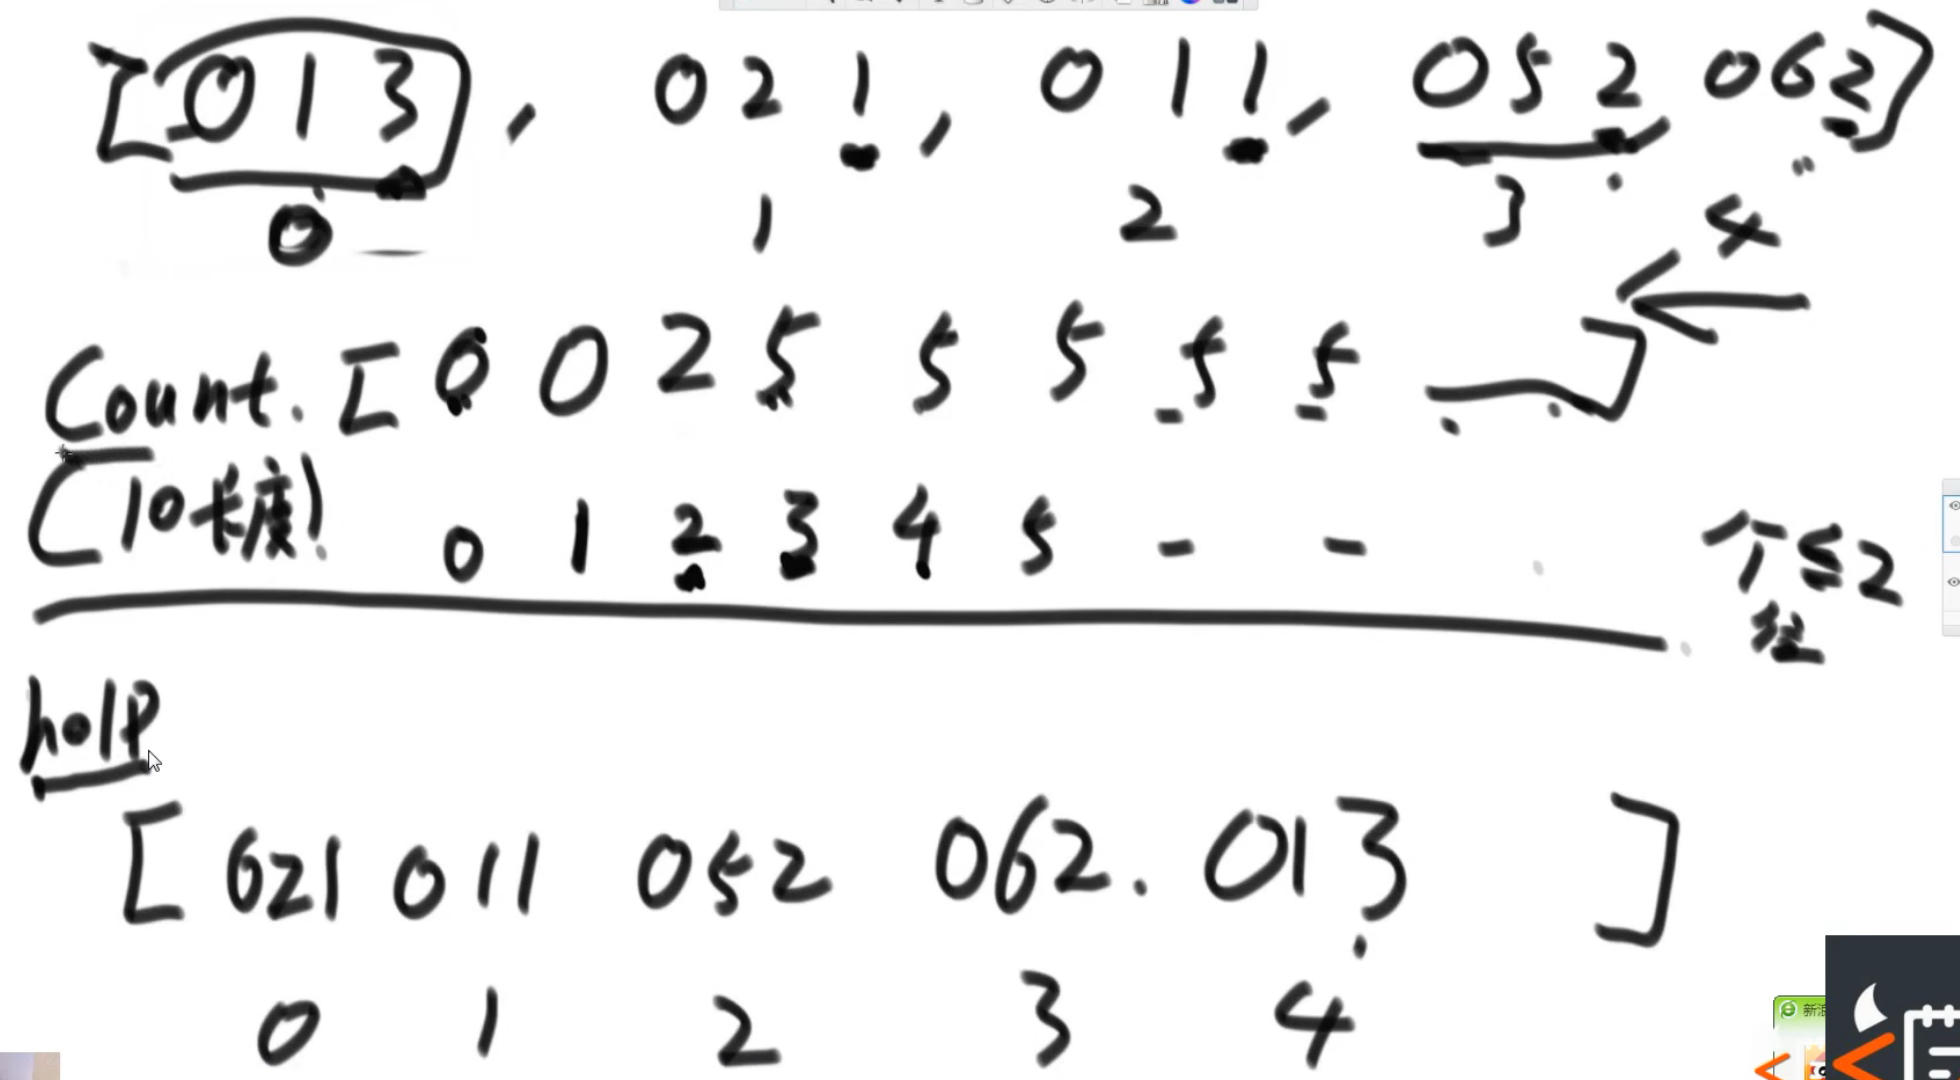 [013, 021, 011, 052, 062]
0 1 2 3 4
Count. [0 0 2 5 5 5 5 5 ]
(10长度) 0 1 2 3 4 5 - -
个≤2
help
[021 011 052 062. 013 ]
0 1 2 3 4